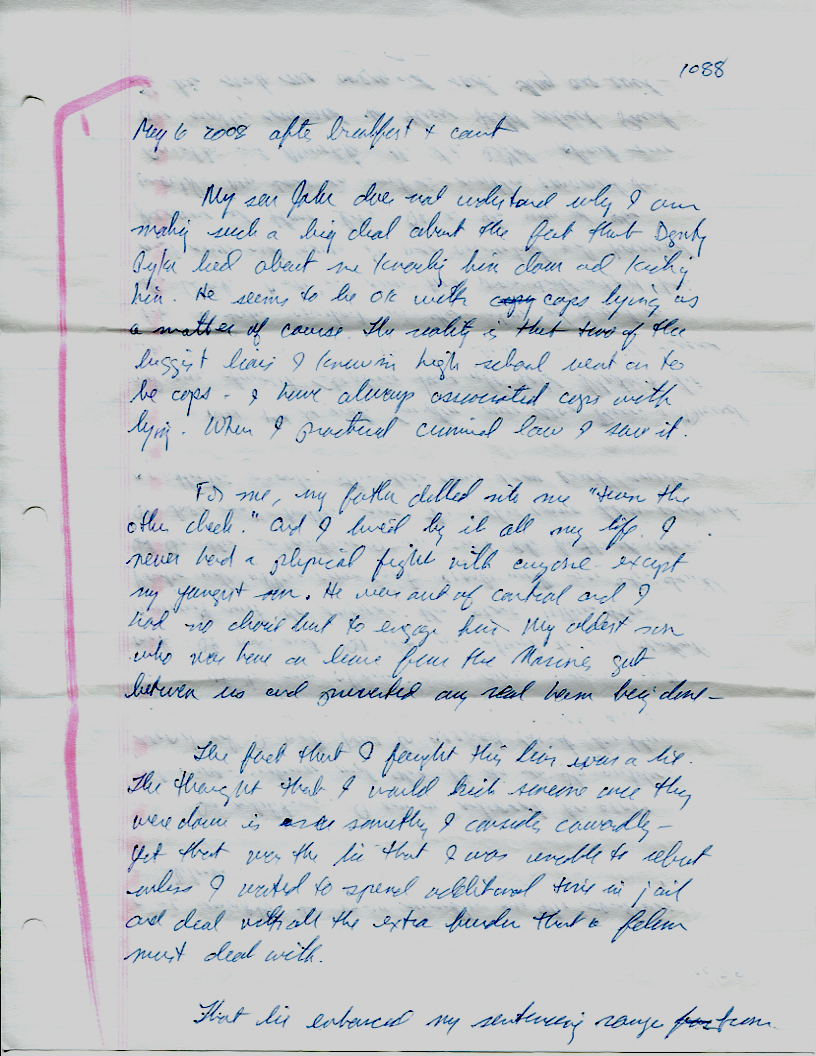 1088
May 6 2008 after breakfast & count
My son Jake does not understand why I am
making such a big deal about the fact that Deputy
lied about me knocking him down and kicking
him. He seems to be OK with cops lying as
a matter of course. The reality is that two of the
biggest liars I knew in high school went on to
be cops - I have always associated cops with
lying. When I practiced criminal law I saw it.
For me, my father drilled into me "turn the
other cheek." and I lived by it all my life. I
never had a physical fight with anyone except
my youngest son. He was out of control and I
had no choice but to engage him. My oldest son
who was home on leave from the Marines got
between us and prevented any real harm being done -
The fact that I fought this liar was a lie.
The thought that I would kick someone once they
were down is something I consider cowardly -
Yet that was the lie that I was unable to rebut
unless I wanted to spend additional time in jail
and deal with all the extra burden that a felon
must deal with.
That lie enhanced my sentencing range from